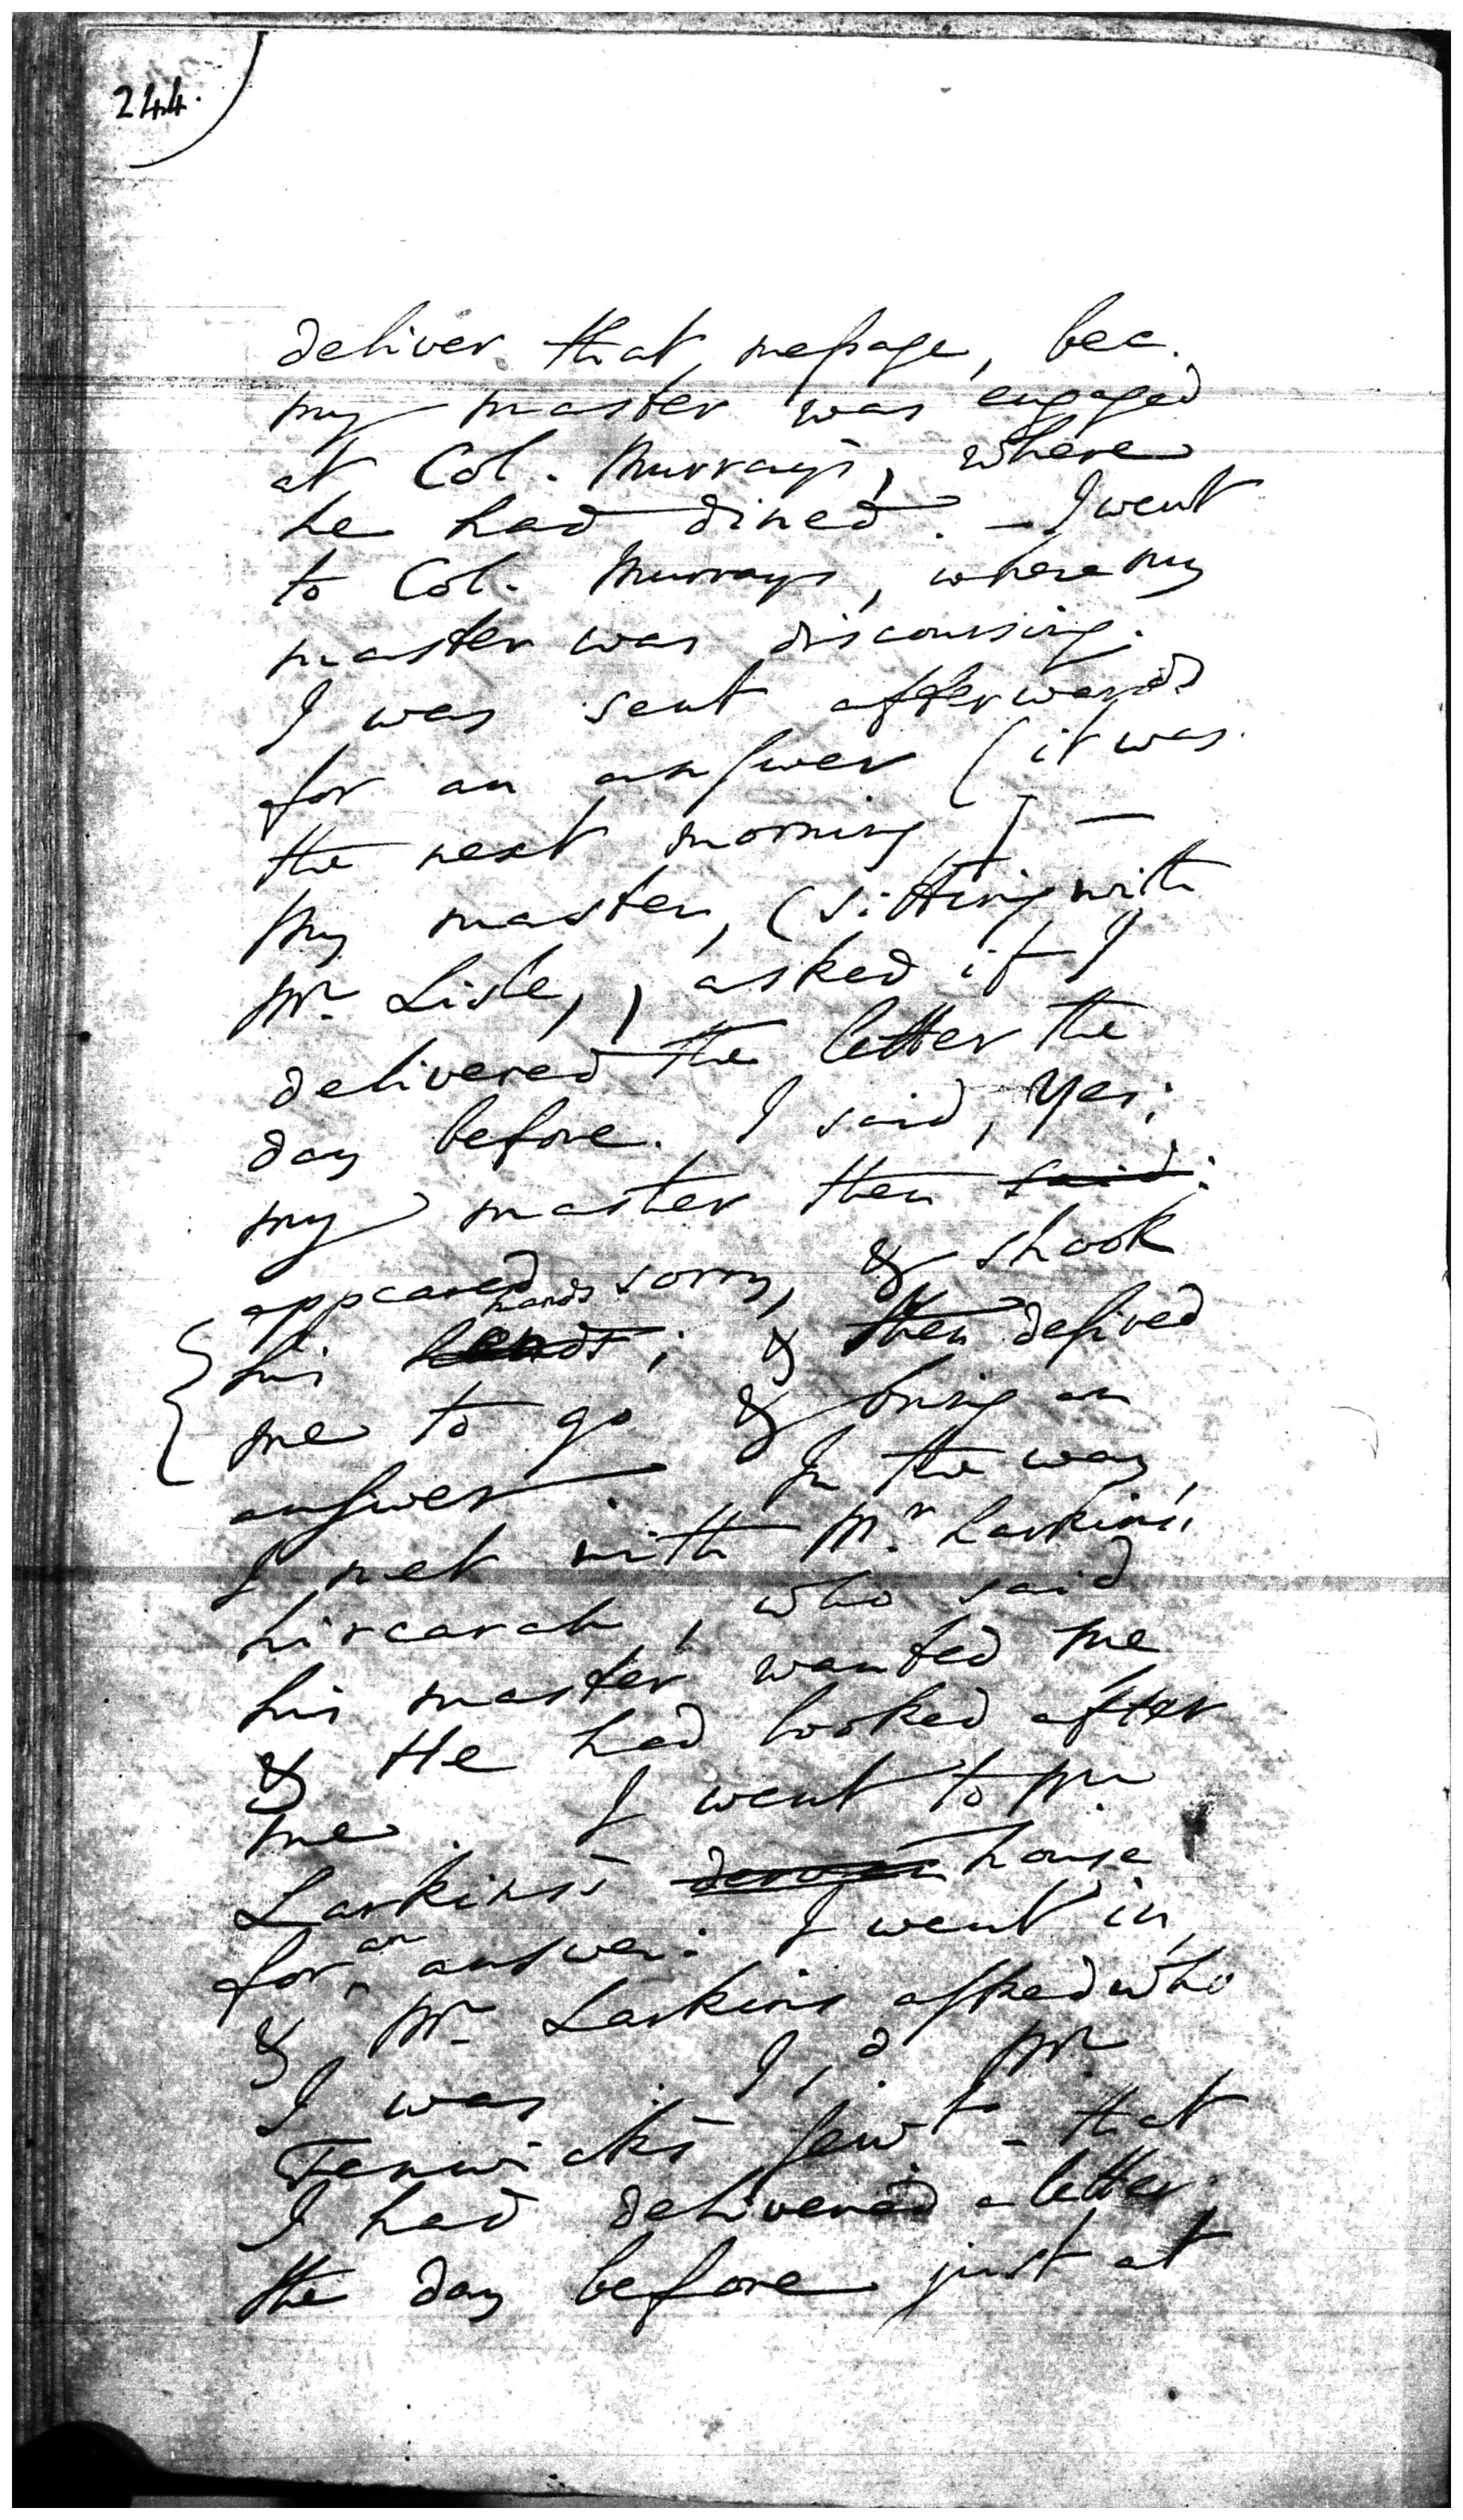 244.
deliver that meſsage, bec.
my master was engaged
at Col. Murray's, where
he had dined. – I went
to Col. Murrays, where my
master was discoursing.
I was sent afterwards
for an anſwer (it was
the next morning) –
My master, (sitting with
Mr. Lisle,) asked if I
delivered the letter the
day before. I said, Yes;
my master then said:
appeared sorry, & shook
hands
his hands; & then deſired
me to go & bring an
anſwer. In the way,
I met with Mr. Larkins's
hircarah, who said
his master wanted me
& He had looked after
me. I went to Mr.
Larkins's house
for an answer. I went in,
& Mr. Larkins aſked who
I was. I sd. Mr.
Fenwick's ſervt – that
I had delivered a letter
the day before just at